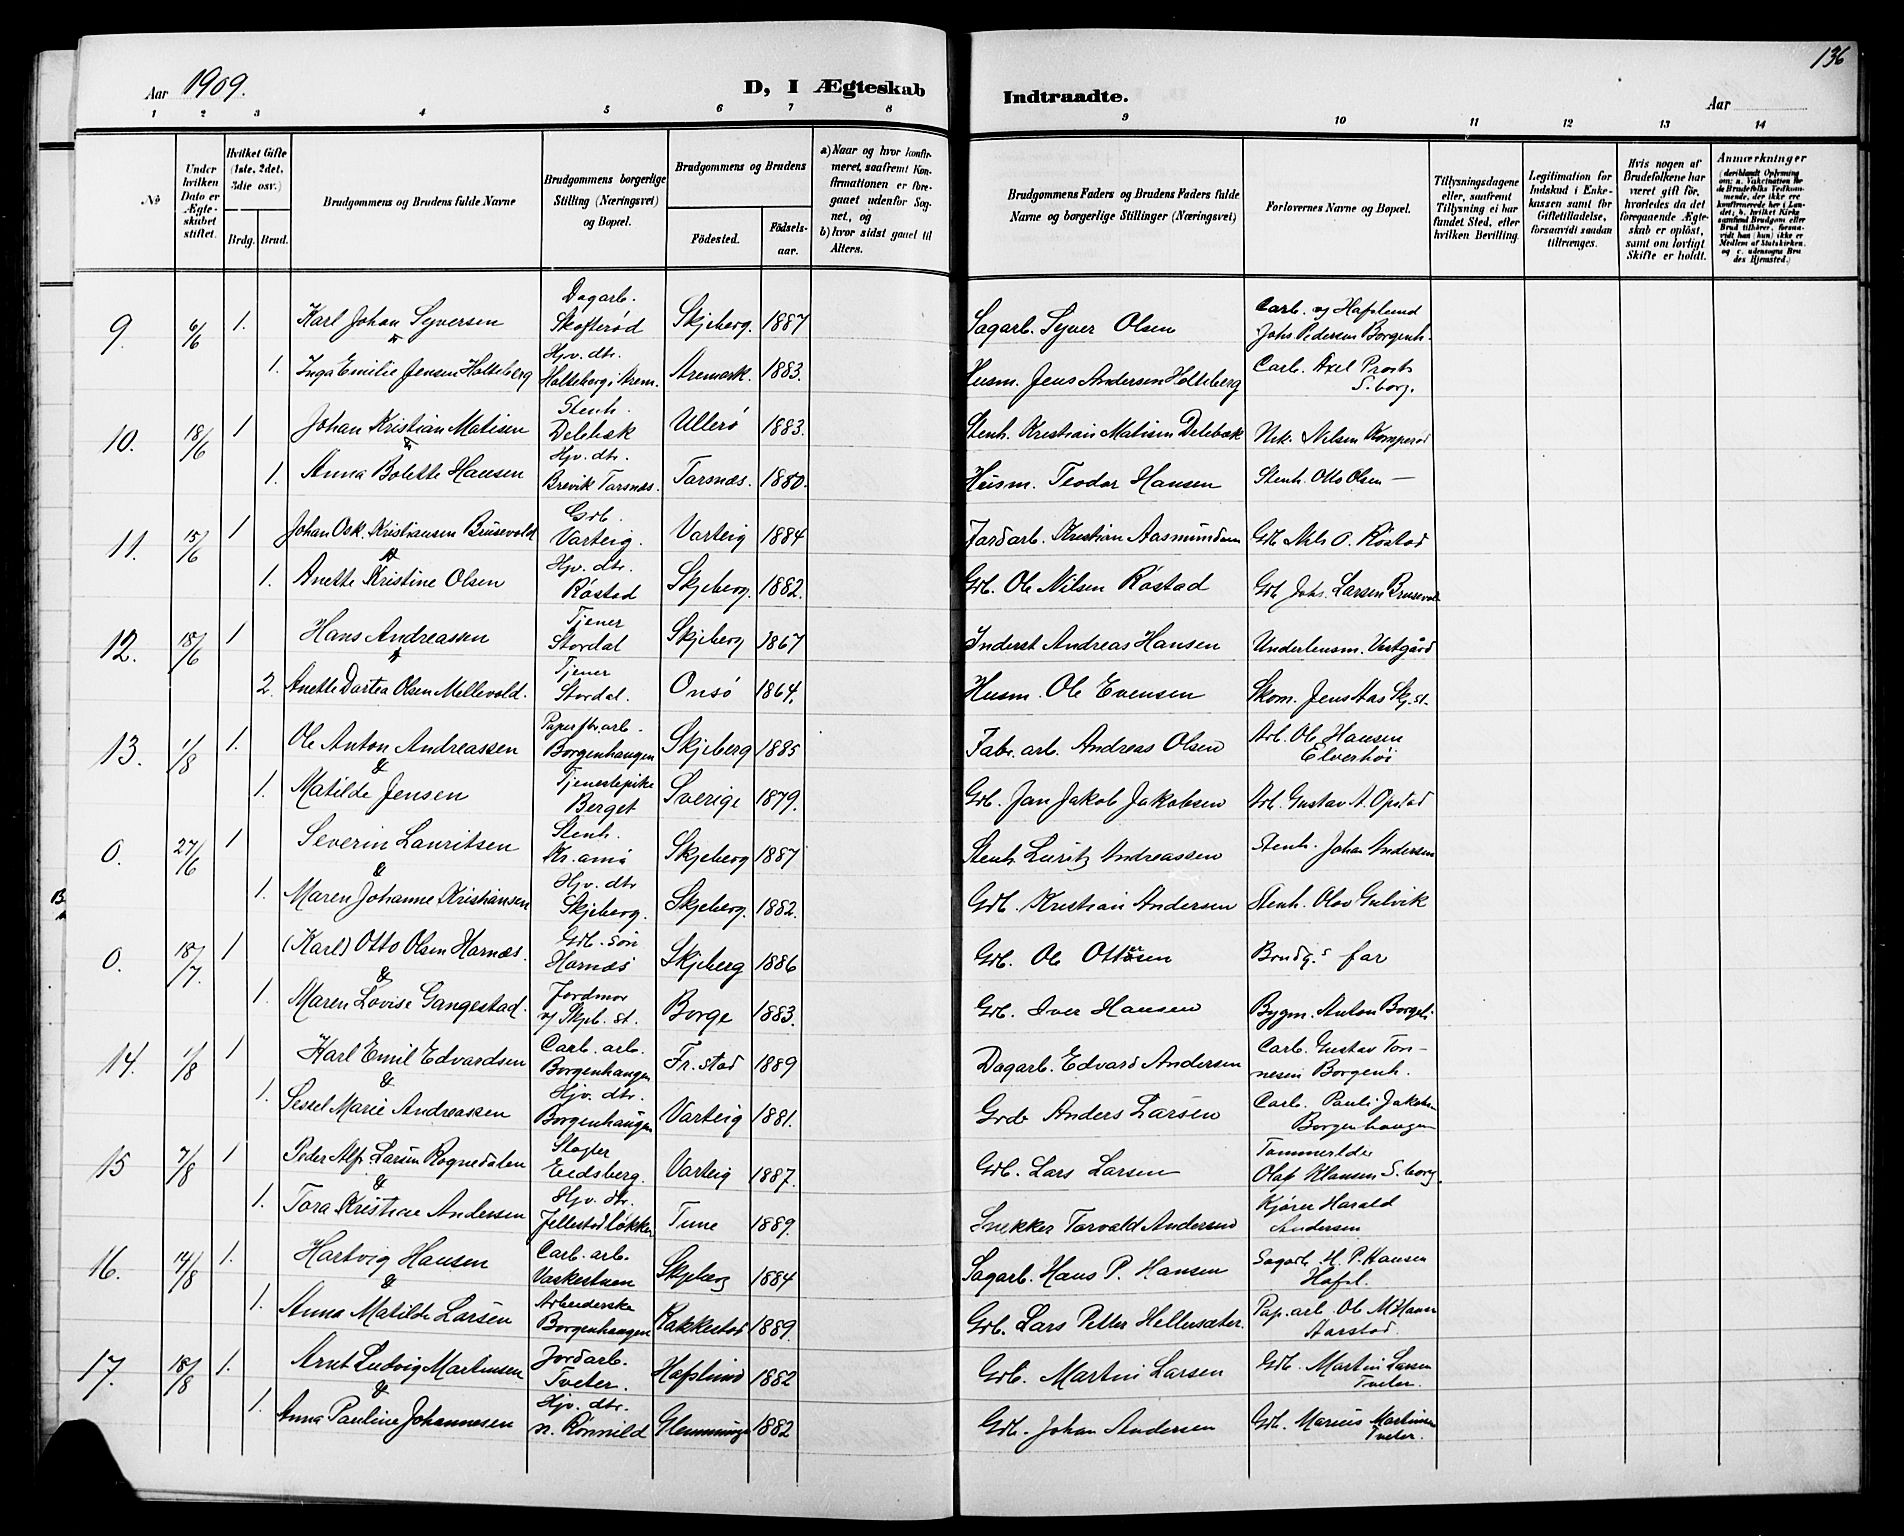 136
Aar 1909.
D, I Ægteskab Indtraadte.
Aar
1 2 3 4 5 6 7 8 9 10 11 12 13 14
№
Under hvilken Dato er Ægteskabet stiftet.
Hvilket Gifte (1ste, 2det, 3die osv.)
Brdg. Brud.
Brudgommens og Brudens fulde Navne
Brudgommens borgerlige Stilling (Næringsvei) og Bopæl.
Brudgommens og Brudens
Fødested.
Fødselsaar.
a) Naar og hvor konfirmeret, saafremt Konfirmationen er foregaaet udenfor Sognet, og
b) hvor sidst gaaet til Alters.
Brudgommens Faders og Brudens Faders fulde Navne og borgerlige Stillinger (Næringsvei)
Forlovernes Navne og Bopæl.
Tillysningsdagene eller, saafremt Tillysning ei har fundet Sted, efter hvilken Bevilling.
Legitimation for Indskud i Enkekassen samt for Giftetilladelse, forsaavidt saadan tiltrænges.
Hvis nogen af Brudefolkene har været gift før, hvorledes da det foregaaende Ægteskab er opløst, samt om lovligt Skifte er holdt.
Anmærkninger
(deriblandt Oplysning om: a. Vakcination for de Brudefolks Vedkommende, der ikke ere konfirmerede her i Landet; b. hvilket Kirkesamfund Brudgom eller Brud tilhører, forsaavidt han (hun) ikke er Medlem af Statskirken, og c. udensogns Brudes Hjemsted.)
9. 6/6 1. Karl Johan Syversen Dagarb. Skofterød Skjeberg. 1887 Sagarb. Syver Olsen Carb. v/ Hafslund Johs Pedersen Borgenh.
1. Inga Emilie Jensen Holteberg Hjv. dtr. Holteberg i Arem. Aremark. 1883. Husm. Jens Andersen Holteberg Carb. Axel S.borg.
10. 18/6 1 Johan Kristian Matisen & Stenh. Delebæk Ullerø 1883. Stenh. Kristian Matisen Delebæk Nik. Nilsen Komperød
1. Anna Bolette Hansen Hjv. dtr. Brevik Torsnæs. Torsnæs. 1880. Husm. Teodor Hansen Stenh. Otto Olsen —
11. 15/6 1 Johan Osk. Kristiansen Brusevold & Grb. Varteig. Varteig 1884 Jordarb. Kristian Aasmundsen Grb. Nils O. Røstad
1. Anette Kristine Olsen Hjv. dtr. Røstad Skjeberg. 1882. Grb. Ole Nilsen Røstad Grb. Johs. Larsen Brusevold
12. 18/6 1 Hans Andreassen & Tjener Stordal Skjeberg 1867 Inderst Andreas Hansen Underlensm. Vestgård
2. Anette Dortea Olsen Mellevold. Tjener Stordal. Onsø 1864. Husm. Ole Evensen Skom. Jens Aas Skj. st.
13. 1/8 1. Ole Anton Andreassen & Papirfbr.arb. Borgenhaugen Skjeberg 1885 Fabr. arb. Andreas Olsen Arb. Ole Hansen Elverhøi
1. Matilde Jensen Tjenestepike Berget Sverige 1879. Grb. Jan Jakob Jakobsen Arb. Gustav A. Opstad
0. 27/6 1 Severin Lauritsen & Stenh. Kr.amø Skjeberg 1887 Stenh. Luritz Andreassen Stenh. Johan Andersen
1. Maren Johanne Kristiansen Hjv. dtr Skjeberg. Skjeberg. 1882. Grb. Kristian Andersen Stenh. Olav Gulvik
0. 18/7. 1 (Karl) Otto Olsen Hornæs. & Grb. søn Hornæs Skjeberg 1886 Grb. Ole Ottersen Brudg.s far
1. Maren Lovise Gangestad. Jordmor v/ Skjeb. st. Borge 1883. Grb. Iver Hansen Bygm. Anton Borgeli
14. 1/8 1 Karl Emil Edvardsen & Carb. arb. Borgenhaugen Fr.stad 1889 Dagarb. Edvard Andersen Carb. Gustav Tonnesen Borgenh.
1. Sessel Marie Andreassen Hjv. dtr. Borgenhaugen Varteig 1881. Grb Anders Larsen Carb. Pauli Jakobsen Borgenhaugen
15 7/8 1 Peder Alf. Larsen Rognedalen & Slagter Eidsberg. Varteig 1887. Grb. Lars Larsen Olaf Klausen S.borg.
1. Tora Kristine Andersen Hjv. dtr. Jellestadløkken Tune 1889. Snekker Torvald Andersen Kjører Harald Andersen
16. 14/8 1. Hartvig Hansen & Carb. arb. Vaskestuen Skjeberg 1884 Sagarb. Hans P. Hansen Sagarb. H. P. Hansen Hafsl.
1. Anna Matilde Larsen Arbeiderske Borgenhaugen Rakkestad 1889. Grb. Lars Petter Hellersæter. Pap.arb. Ole M. Hansen Aarstad.
17. 18/8 1. Arnt Ludvig Martinsen & Jordarb. Tveter. Hafslund 1882 Grb. Martin Larsen Grb. Martin Larsen Tveter.
1. Anna Pauline Johannesen Hjv. dtr. n. Rønnild Glemminge 1882 Grb. Johan Andersen Grb. Marius Martinsen Tveter.